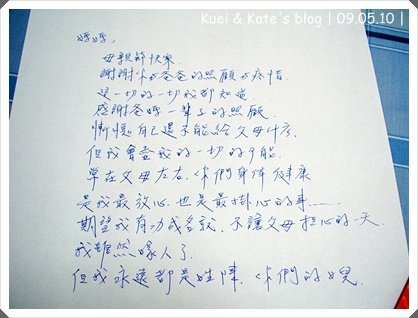 Kuei & Kate's blog | 09.05.10 |
媽媽：
母親節快樂
謝謝你與爸爸的照顧与疼惜
這一切的一切我都知道
感謝爸媽一輩子的照顧
慚愧自己還不能給父母什麼
但我會盡我的一切可能
常在父母左右．你們身体健康
是我最放心．也是最掛心的事……
期望我有功成名就、不讓父母担心的一天
我雖然嫁人了．
但我永遠都是姓陳．你們的女兒．